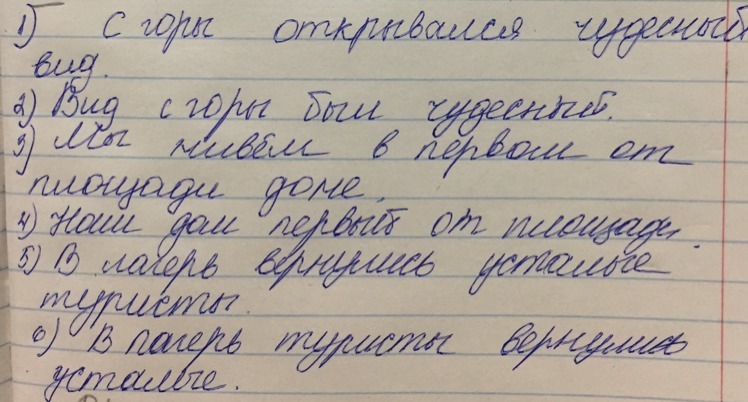 1) С горы открывался чудесный
вид.
2) Вид с горы был чудесный.
3) Мы живём в первом от
площади доме.
4) Наш дом первый от площади.
5) В лагерь вернулись усталые
туристы.
6) В лагерь туристы вернулись
усталые.